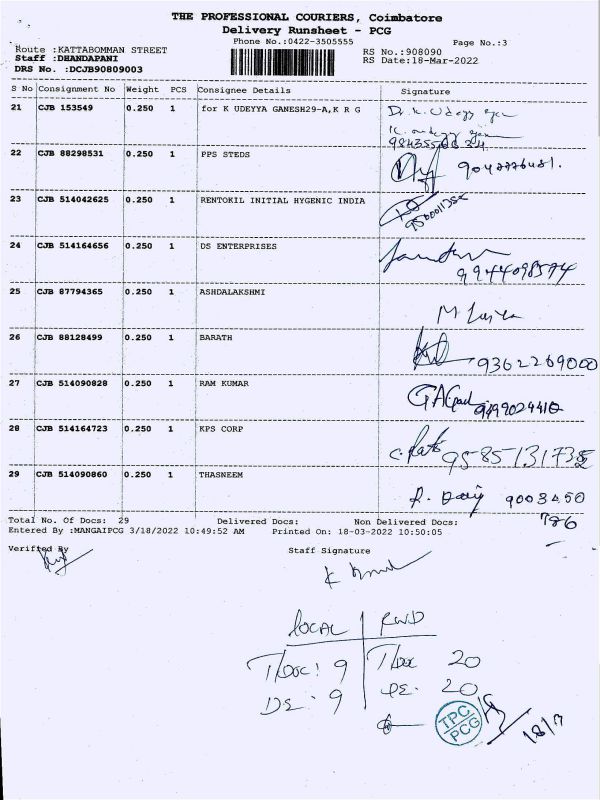 THE PROFESSIONAL COURIERS, Coimbatore
Delivery Runsheet - PCG
Phone No.:0422-3505555
Page No.:3
Route :KATTABOMMAN STREET
RS No.:908090
Staff :DHANDAPANI
RS Date:18-Mar-2022
DRS No. :DCJB90809003
S No Consignment No Weight PCS Consignee Details Signature
21 CJB 153549 0.250 1 for K UDEYYA GANESH29-A,K R G
22 CJB 88298531 0.250 1 PPS STEDS
23 CJB 514042625 0.250 1 RENTOKIL INITIAL HYGENIC INDIA
24 CJB 514164656 0.250 1 DS ENTERPRISES
9944098574
25 CJB 87794365 0.250 1 ASHDALAKSHMI
26 CJB 88128499 0.250 1 BARATH
9362269000
27 CJB 514090828 0.250 1 RAM KUMAR
28 CJB 514164723 0.250 1 KPS CORP
29 CJB 514090860 0.250 1 THASNEEM
9003450
786
Total No. Of Docs: 29 Delivered Docs: Non Delivered Docs:
Entered By :MANGAIPCG 3/18/2022 10:49:52 AM Printed On: 18-03-2022 10:50:05
Verified By Staff Signature
LOCAL
9 20
9 20
TPC
PCG